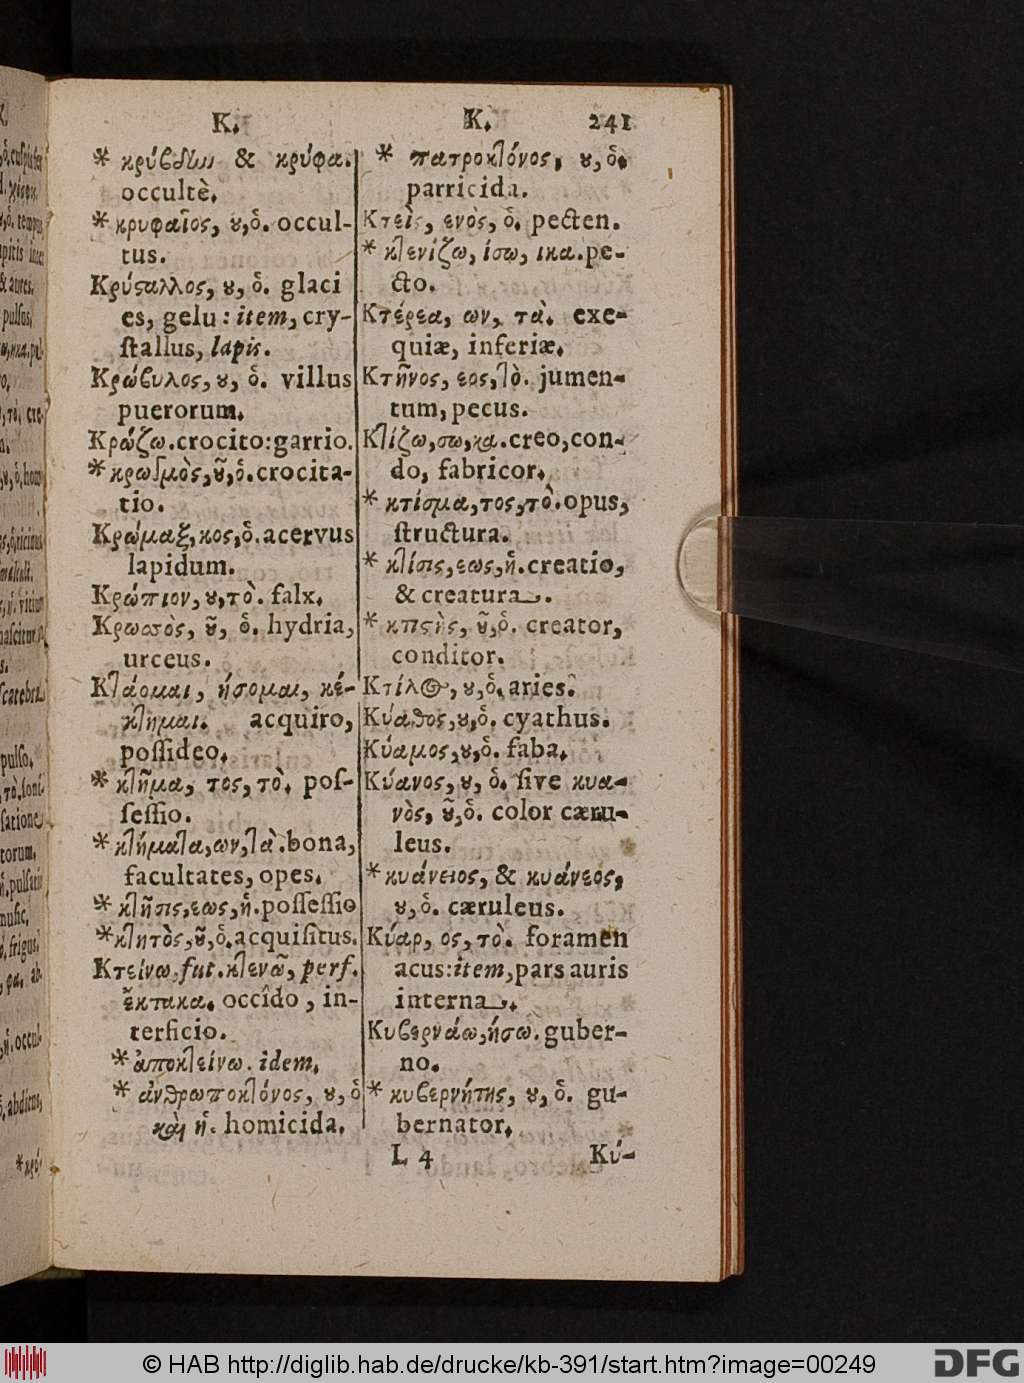 K.
* κρύβδην & κρύφα.
occultè.
* κρυφαῖος, ȣ, ὁ. occul-
tus.
Κρύϛαλλος, ȣ, ὁ. glaci
es, gelu: item, cry-
ſtallus, lapis.
Κρώβυλος, ȣ, ὁ. villus
puerorum.
Κρώζω. crocito: garrio.
* κρωσμὸς, ȣ͂, ὁ. crocita-
tio.
Κρώμαξ, κος, ὁ. acervus
lapidum.
Κρώπιον, ȣ, τὸ. falx.
Κρωσσὸς, ȣ͂, ὁ. hydria,
urceus.
Κτάομαι, ήσομαι, κέ-
κτημαι. acquiro,
poſſideo.
* κτῆμα, τος, τὸ. poſ-
ſeſſio.
* κτήματα, ων, τὰ. bona,
facultates, opes.
* κτῆσις, εως, ἡ. poſſeſſio
* κτητὸς, ȣ͂, ὁ. acquiſitus.
Κτείνω, fut. κτενῶ, perf.
ἔκτακα. occîdo, in-
terficio.
* ἀποκτείνω. idem.
* ἀνθρωποκτόνος, ȣ, ὁ
καὶ ἡ. homicida.
K. 241
* πατροκτόνος, ȣ, ὁ.
parricida.
Κτεὶς, ενὸς, ὁ. pecten.
* κτενίζω, ίσω, ικα. pe-
cto.
Κτέρεα, ων, τὰ. exe-
quiæ, inferiæ.
Κτῆνος, εος, τὸ. jumen-
tum, pecus.
Κτίζω, σω, κα. creo, con-
do, fabricor.
* κτίσμα, τος, τὸ. opus,
ſtructura.
* κτίσις, εως, ἡ. creatio,
& creatura.
* κτιϛὴς, ȣ͂, ὁ. creator,
conditor.
Κτίλος, ȣ, ὁ. aries.
Κύαθος, ȣ, ὁ. cyathus.
Κύαμος, ȣ, ὁ. faba.
Κύανος, ȣ, ὁ. ſive κυα-
νὸς, ȣ͂, ὁ. color cæru-
leus.
* κυάνειος, & κυάνεός,
ȣ, ὁ. cæruleus.
Κύαρ, ος, τὸ. foramen
acus: item, pars auris
interna.
Κυβερνάω, ήσω. guber-
no.
* κυβερνήτης, ȣ, ὁ. gu-
bernator.
L 4 Κύ-
© HAB http://diglib.hab.de/drucke/kb-391/start.htm?image=00249
DFG